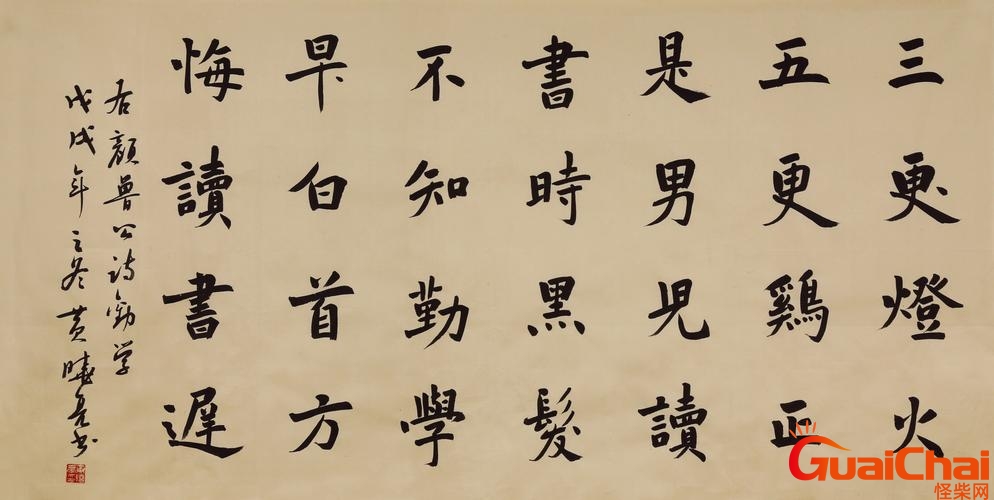 三更燈火
五更鷄正
是男兒讀
書時黑髮
不知勤學
早白首方
悔讀書遲
右顔魯公詩勸学
戊戌年之冬黄曉书
GuaiChai
怪柴网